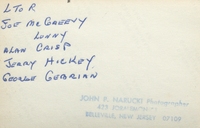 L TO R
JOE McGREEVY
LUNNY
ALAN CRISP
JERRY HICKEY
GEORGE GEBRIAN
JOHN R. Photographer
BELLEVILLE, NEW JERSEY 07109